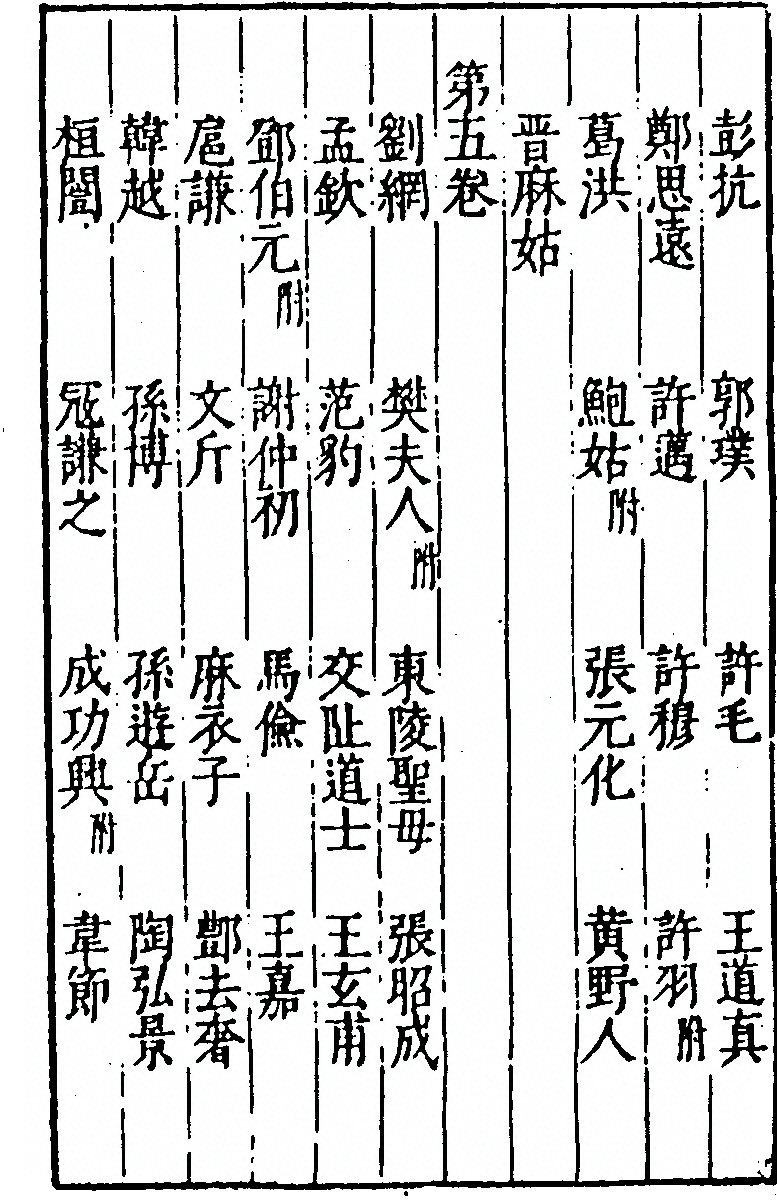 彭抗 郭璞 許毛 王道真
鄭思遠 許邁 許穆 許羽附
葛洪 鮑姑附 張元化 黄野人
晋麻姑
第五卷
劉綱 樊夫人附 東陵聖母 張昭成
孟欽 范豹 交阯道士 王玄甫
鄧伯元附 謝仲初 馬儉 王嘉
扈謙 文斤 麻衣子 酆去奢
韓越 孫博 孫遊岳 陶弘景
桓闓 冦謙之 成功興附 韋節